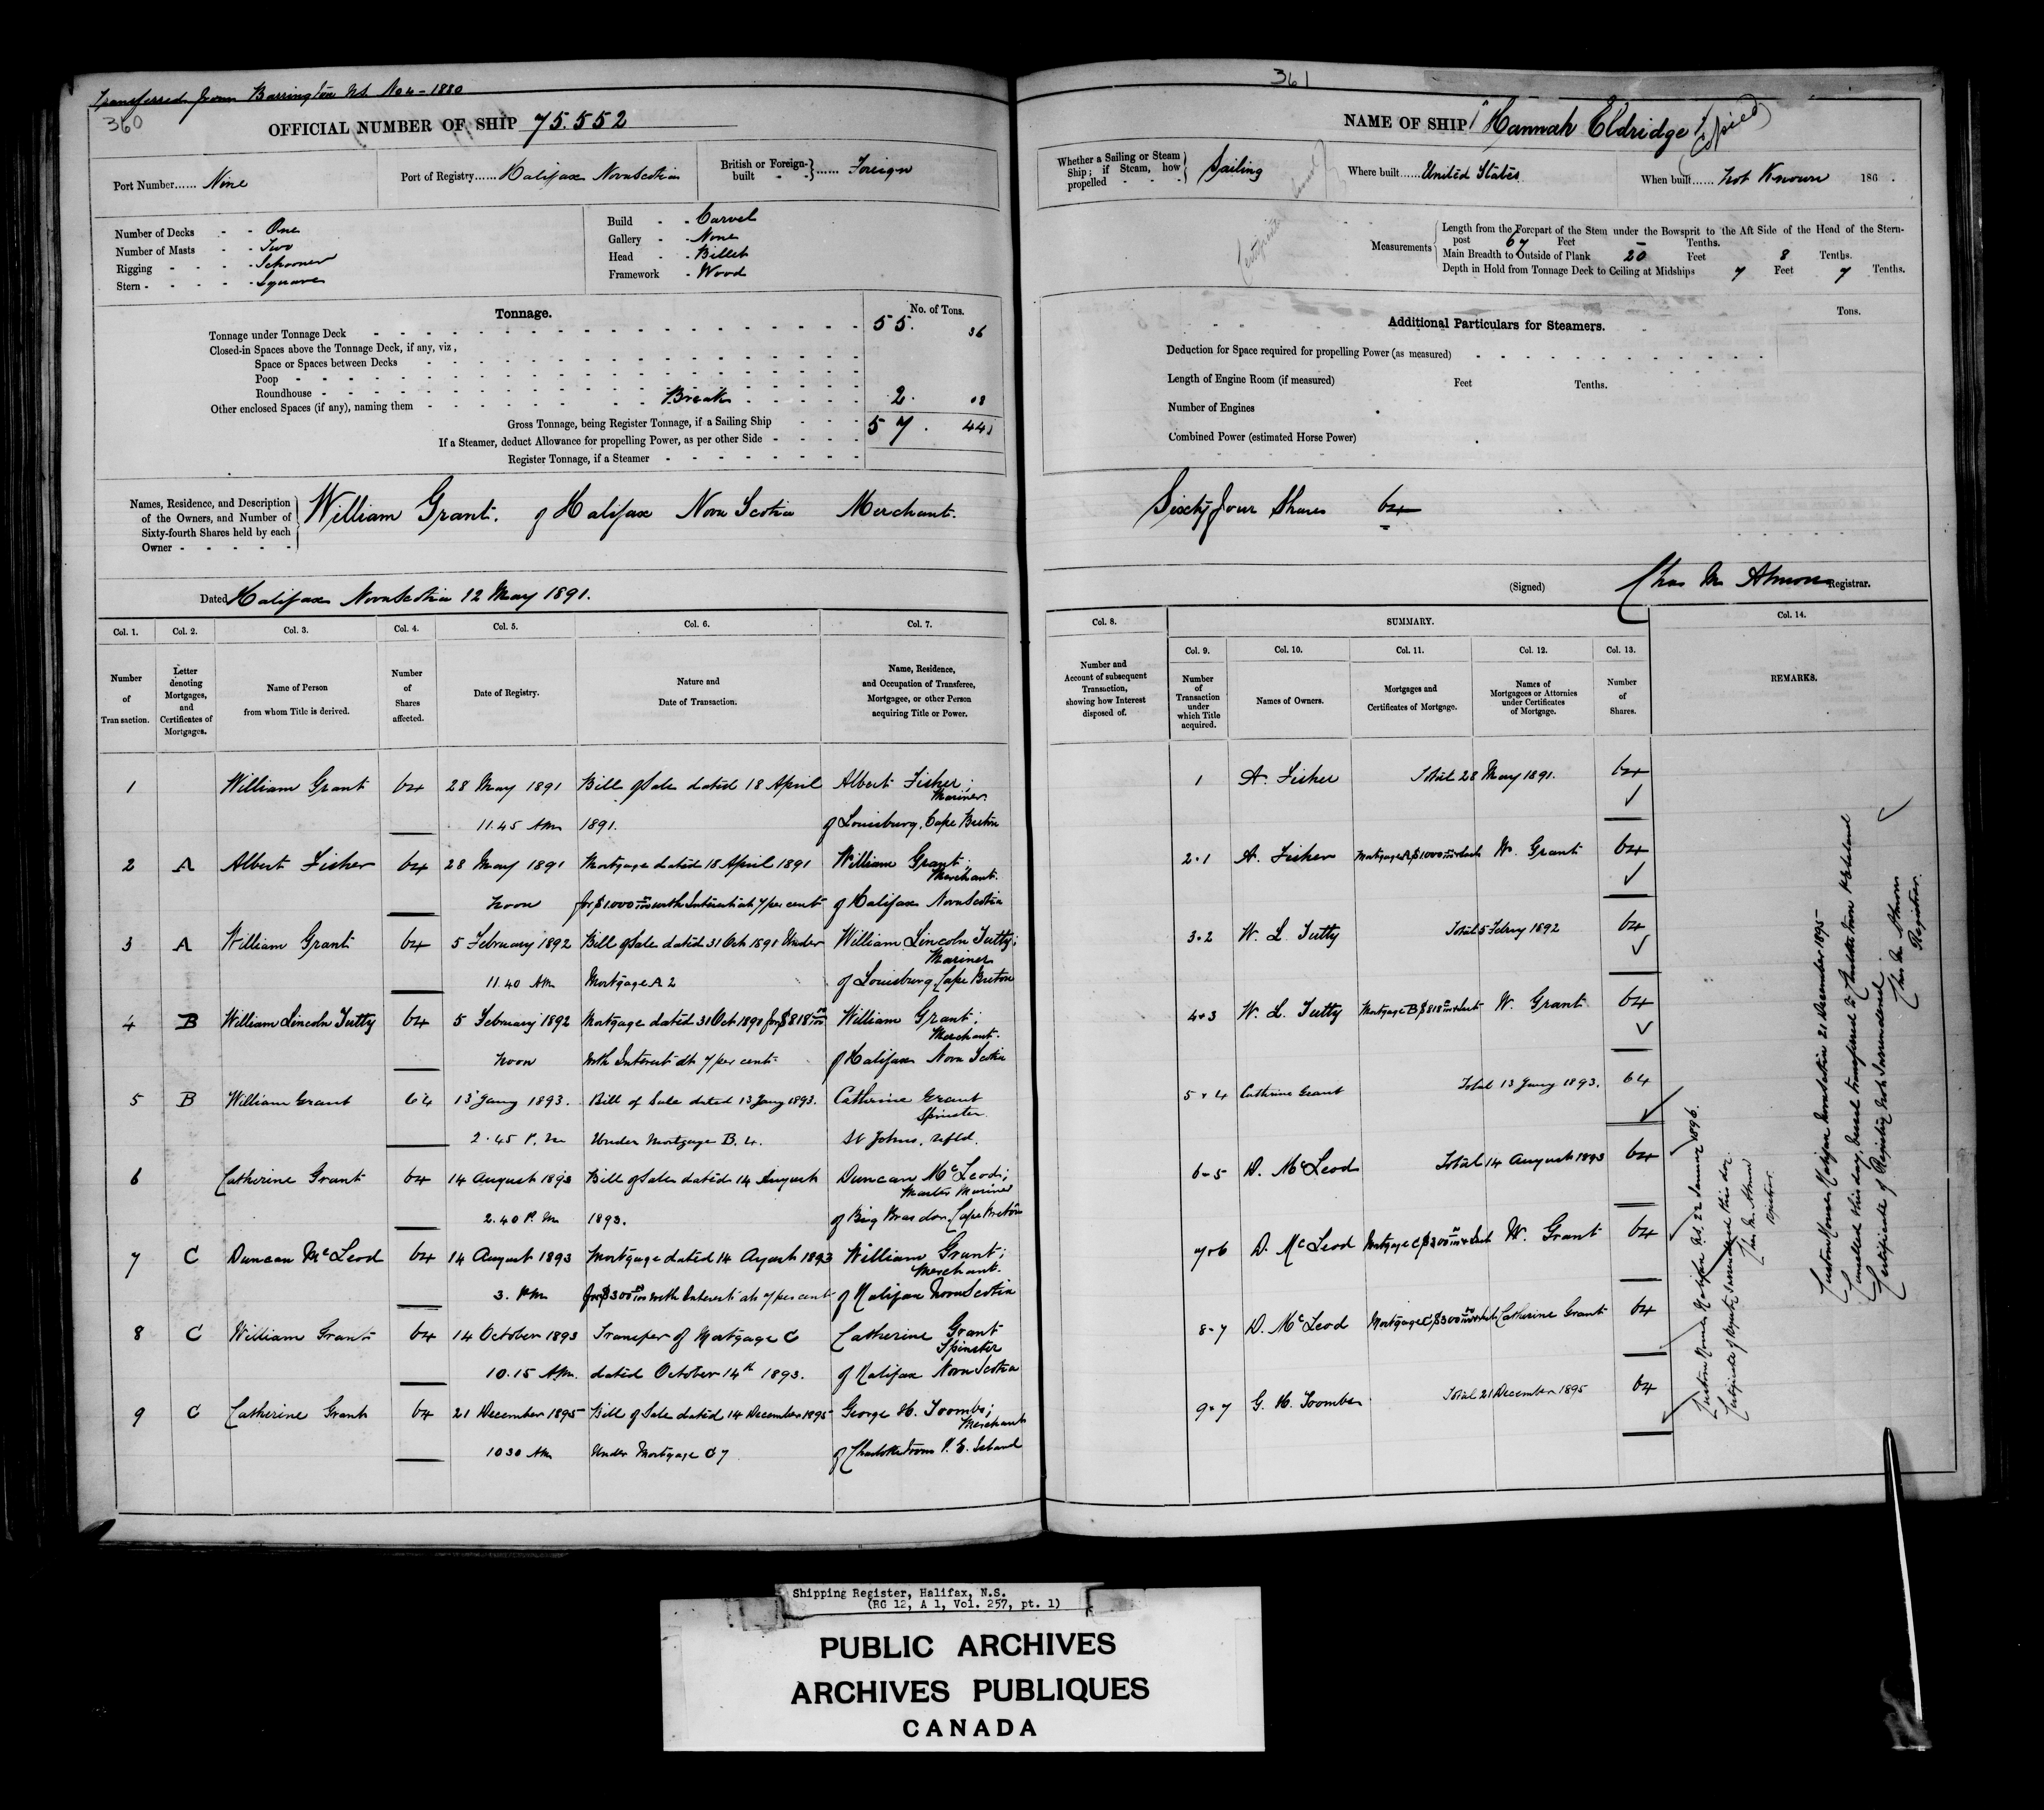 Transferred from Barrington N.S. No 4 - 1880
360
OFFICIAL NUMBER OF SHIP 75.552
Port Number...... Nine
Port of Registry...... Halifax Nova Scotia
British or Foreign-built - - }...... Foreign
Number of Decks - - One
Number of Masts - - Two
Rigging - - - - Schooner
Stern - - - - - Square
Build - - Carvel
Gallery - - None
Head - - Billet
Framework - Wood
Tonnage.
No. of Tons.
Tonnage under Tonnage Deck 55. 36
Closed-in Spaces above the Tonnage Deck, if any, viz,
Space or Spaces between Decks
Poop
Roundhouse
Other enclosed Spaces (if any), naming them Break 2. 08
Gross Tonnage, being Register Tonnage, if a Sailing Ship 57. 44
If a Steamer, deduct Allowance for propelling Power, as per other Side
Register Tonnage, if a Steamer
Names, Residence, and Description
of the Owners, and Number of
Sixty-fourth Shares held by each
Owner
William Grant. of Halifax Nova Scotia Merchant.
Dated Halifax Nova Scotia 12 May 1891.
Col. 1. Col. 2. Col. 3. Col. 4. Col. 5. Col. 6. Col. 7.
Number of Transaction.
Letter denoting Mortgages, and Certificates of Mortgages.
Name of Person from whom Title is derived.
Number of Shares affected.
Date of Registry.
Nature and Date of Transaction.
Name, Residence, and Occupation of Transferee, Mortgagee, or other Person acquiring Title or Power.
1 William Grant 64 28 May 1891 Bill of Sale dated 18 April Albert Fisher;
Mariner.
11.45 AM 1891. of Louisburg, Cape Breton
2 A Albert Fisher 64 28 May 1891 Mortgage dated 18 April 1891 William Grant;
Merchant.
Noon for $1000 00/100 with Interest at 7 per cent of Halifax Nova Scotia
3 A William Grant 64 5 February 1892 Bill of Sale dated 31 Oct 1891 Under William Lincoln Tutty;
Mariner
11.40 AM Mortgage A 2 of Louisburg Cape Breton
4 B William Lincoln Tutty 64 5 February 1892 Mortgage dated 31 Oct 1891 for $818 00/100 William Grant;
Merchant.
Noon with Interest at 7 per cent. of Halifax Nova Scotia
5 B William Grant 64 13 Jany 1893. Bill of Sale dated 13 Jany 1893. Catherine Grant
Spinster
2.45 P.M Under Mortgage B. 4. St Johns, Nfld.
6 Catherine Grant 64 14 August 1893 Bill of Sale dated 14 August Duncan McLeod;
Master Mariner
2.40 P.M 1893. of Big Bras dor Cape Breton
7 C Duncan McLeod 64 14 August 1893 Mortgage dated 14 August 1893 William Grant;
Merchant.
3. PM for $300 00/100 with Interest at 7 per cent of Halifax Nova Scotia
8 C William Grant 64 14 October 1893 Transfer of Mortgage C Catherine Grant
Spinster
10.15 AM. dated October 14th 1893. of Halifax Nova Scotia
9 C Catherine Grant 64 21 December 1895 Bill of Sale dated 14 December 1895 George H. Toombs;
Merchant
10 30 AM Under Mortgage C 7 of Charlottetown P. E. Island
361
NAME OF SHIP "Hannah Eldridge"
(Copied)
Whether a Sailing or Steam Ship; if Steam, how propelled - - - Sailing
Where built...... United States
When built...... Not Known 186 .
Measurements
Length from the Forepart of the Stem under the Bowsprit to the Aft Side of the Head of the Stern-
post 67 Feet - Tenths.
Main Breadth to Outside of Plank 20 Feet 8 Tenths.
Depth in Hold from Tonnage Deck to Ceiling at Midships 7 Feet 7 Tenths.
Additional Particulars for Steamers.
Tons.
Deduction for Space required for propelling Power (as measured)
Length of Engine Room (if measured) Feet Tenths.
Number of Engines
Combined Power (estimated Horse Power)
Sixty four Shares 64
(Signed) Chas M Almon Registrar.
Col. 8. SUMMARY. Col. 14.
Col. 9. Col. 10. Col. 11. Col. 12. Col. 13.
Number and Account of subsequent Transaction, showing how Interest disposed of.
Number of Transaction under which Title acquired.
Names of Owners.
Mortgages and Certificates of Mortgage.
Names of Mortgagees or Attornies under Certificates of Mortgage.
Number of Shares.
REMARKS.
1 A. Fisher Total 28 May 1891. 64
2.1 A. Fisher Mortgage A $1000 00/100 W. Grant 64
3.2 W. L. Tutty Total 5 Febry 1892 64
4.3 W. L. Tutty Mortgage B $818 00/100 W. Grant 64
5.4 Cathrine Grant Total 13 Jany 1893. 64
6-5 D. McLeod Total 14 August 1893 64
7.6 D. McLeod Mortgage C $300 00/100 W. Grant 64
8-7 D. McLeod Mortgage C $300 00/100 Catherine Grant 64
9.7 G. H. Toombs Total 21 December 1895 64
Custom House Halifax N.S. 22 January 1896.
Certificate of Registry surrendered this day.
Chas M. Almon
Registrar.
Custom House, Halifax Nova Scotia 21 December 1895
Cancelled this day, vessel transferred to Charlottetown P E Island
Certificate of Registry not surrendered.
Chas M. Almon
Registrar.
Shipping Register, Halifax, N.S.
(RG 12, A 1, Vol. 257, pt. 1)
PUBLIC ARCHIVES
ARCHIVES PUBLIQUES
CANADA